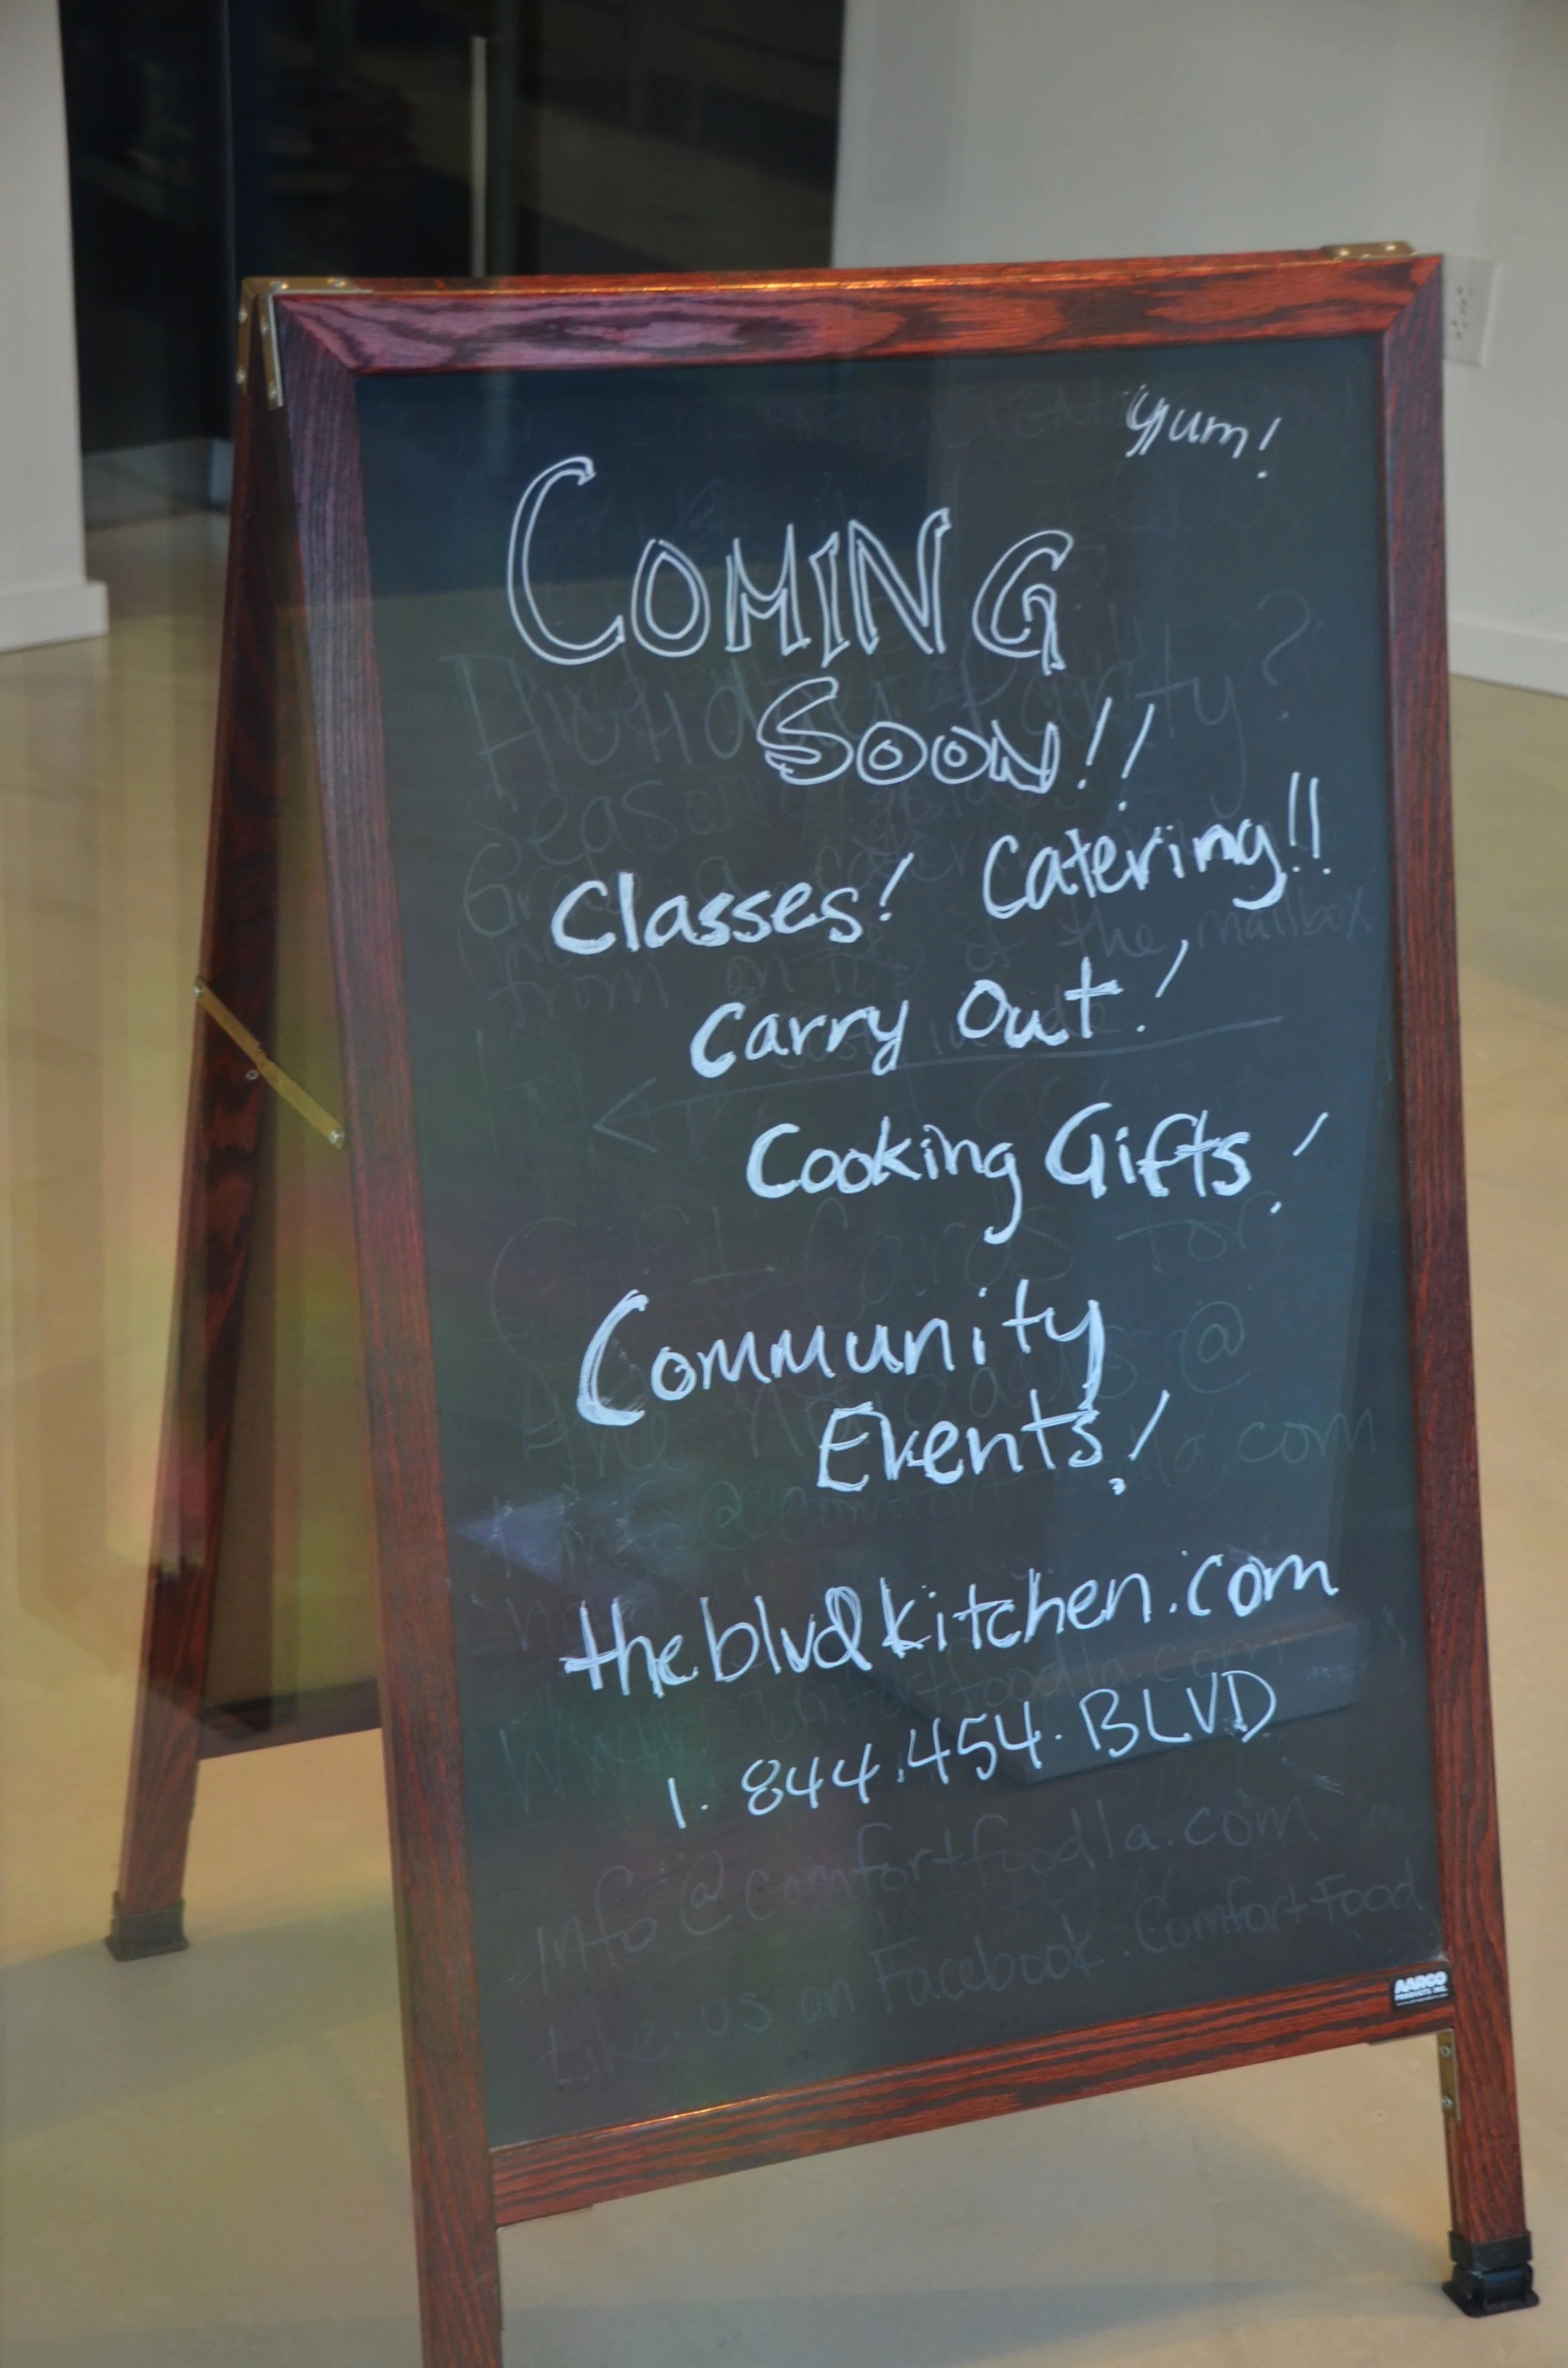 Yum!
COMING
SOON!!
Classes! Catering!!
Carry Out!
Cooking Gifts!
Community
Events!
theblvdkitchen.com
1.844.454.BLVD
info@comfortfoodla.com
Like us on Facebook. Comfort Food
AARCO
PRODUCTS INC.